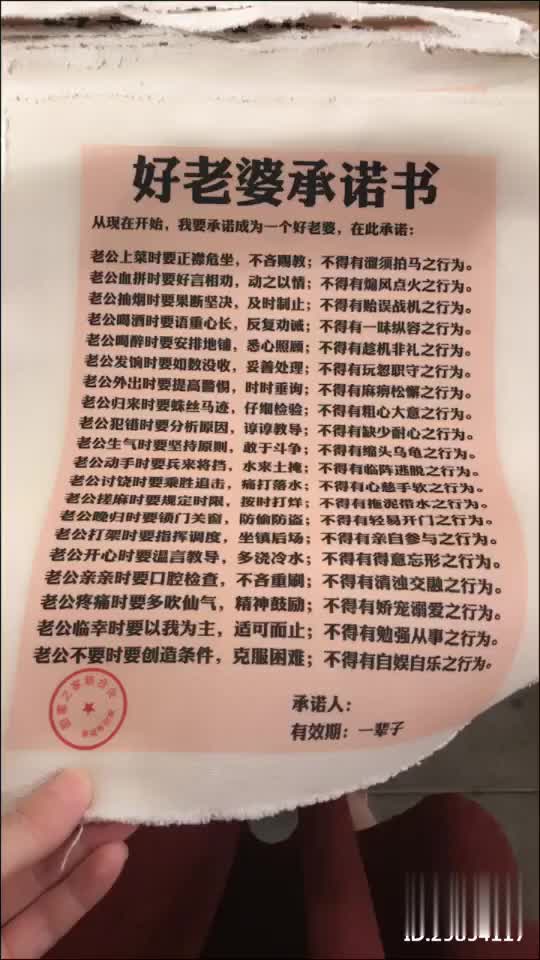 好老婆承诺书
从现在开始，我要承诺成为一个好老婆，在此承诺：
老公上菜时要正襟危坐，不吝赐教；不得有溜须拍马之行为。
老公血拼时要好言相劝，动之以情；不得有煽风点火之行为。
老公抽烟时要果断坚决，及时制止；不得有贻误战机之行为。
老公喝酒时要语重心长，反复劝诫；不得有一味纵容之行为。
老公喝醉时要安排地铺，悉心照顾；不得有趁机非礼之行为。
老公发饷时要如数没收，妥善处理；不得有玩忽职守之行为。
老公外出时要提高警惕，时时垂询；不得有麻痹松懈之行为。
老公归来时要蛛丝马迹，仔细检验；不得有粗心大意之行为。
老公犯错时要分析原因，谆谆教导；不得有缺少耐心之行为。
老公生气时要坚持原则，敢于斗争；不得有缩头乌龟之行为。
老公动手时要兵来将挡，水来土掩；不得有临阵逃脱之行为。
老公讨饶时要乘胜追击，痛打落水；不得有心慈手软之行为。
老公搓麻时要规定时限，按时打烊；不得有拖泥带水之行为。
老公晚归时要锁门关窗，防偷防盗；不得有轻易开门之行为。
老公打架时要指挥调度，坐镇后场；不得有亲自参与之行为。
老公开心时要温言教导，多浇冷水；不得有得意忘形之行为。
老公亲亲时要口腔检查，不吝重刷；不得有清浊交融之行为。
老公疼痛时要多吹仙气，精神鼓励；不得有娇宠溺爱之行为。
老公临幸时要以我为主，适可而止；不得有勉强从事之行为。
老公不要时要创造条件，克服困难；不得有自娱自乐之行为。
承诺人：
有效期：一辈子